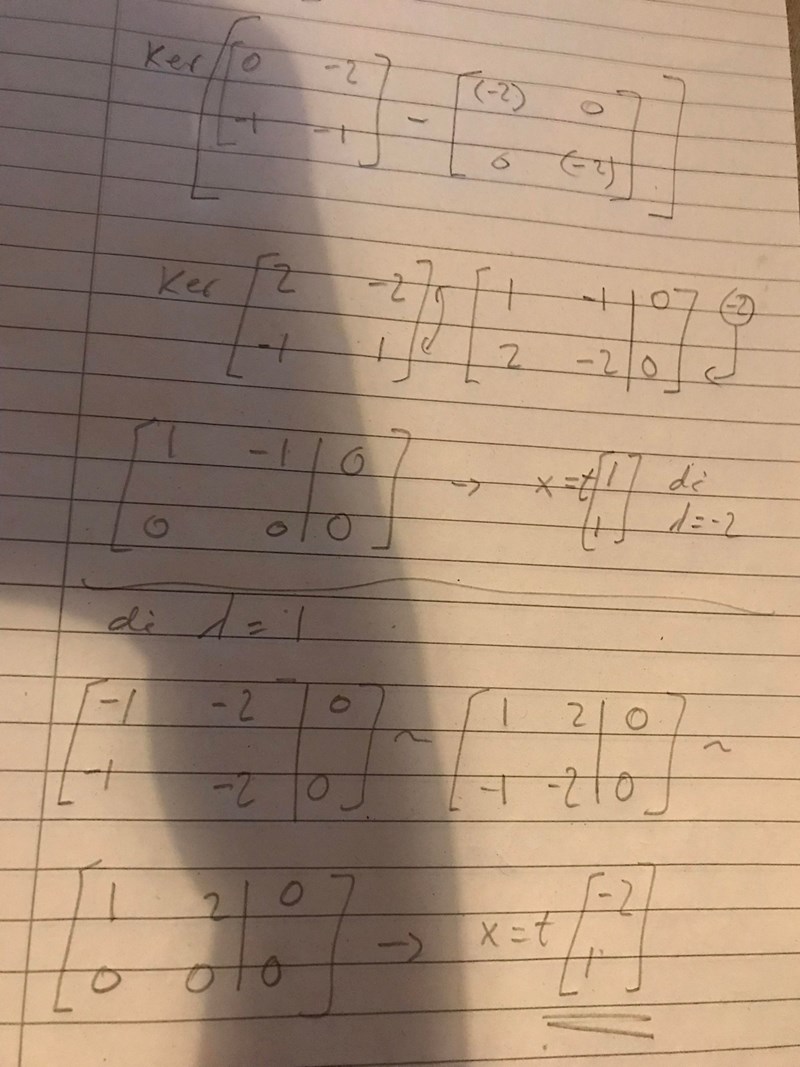 Ker [ [ 0 -2
-1 -1 ] - [ (-2) 0
0 (-2) ] ]
Ker [ 2 -2
-1 1 ] [ 1 -1 | 0
2 -2 | 0 ] (-2)
[ 1 -1 | 0
0 0 | 0 ] → x = t [ 1
1 ] di
λ = -2
di λ = 1
[ -1 -2 | 0
-1 -2 | 0 ] ~ [ 1 2 | 0
-1 -2 | 0 ] ~
[ 1 2 | 0
0 0 | 0 ] → x = t [ -2
1 ]